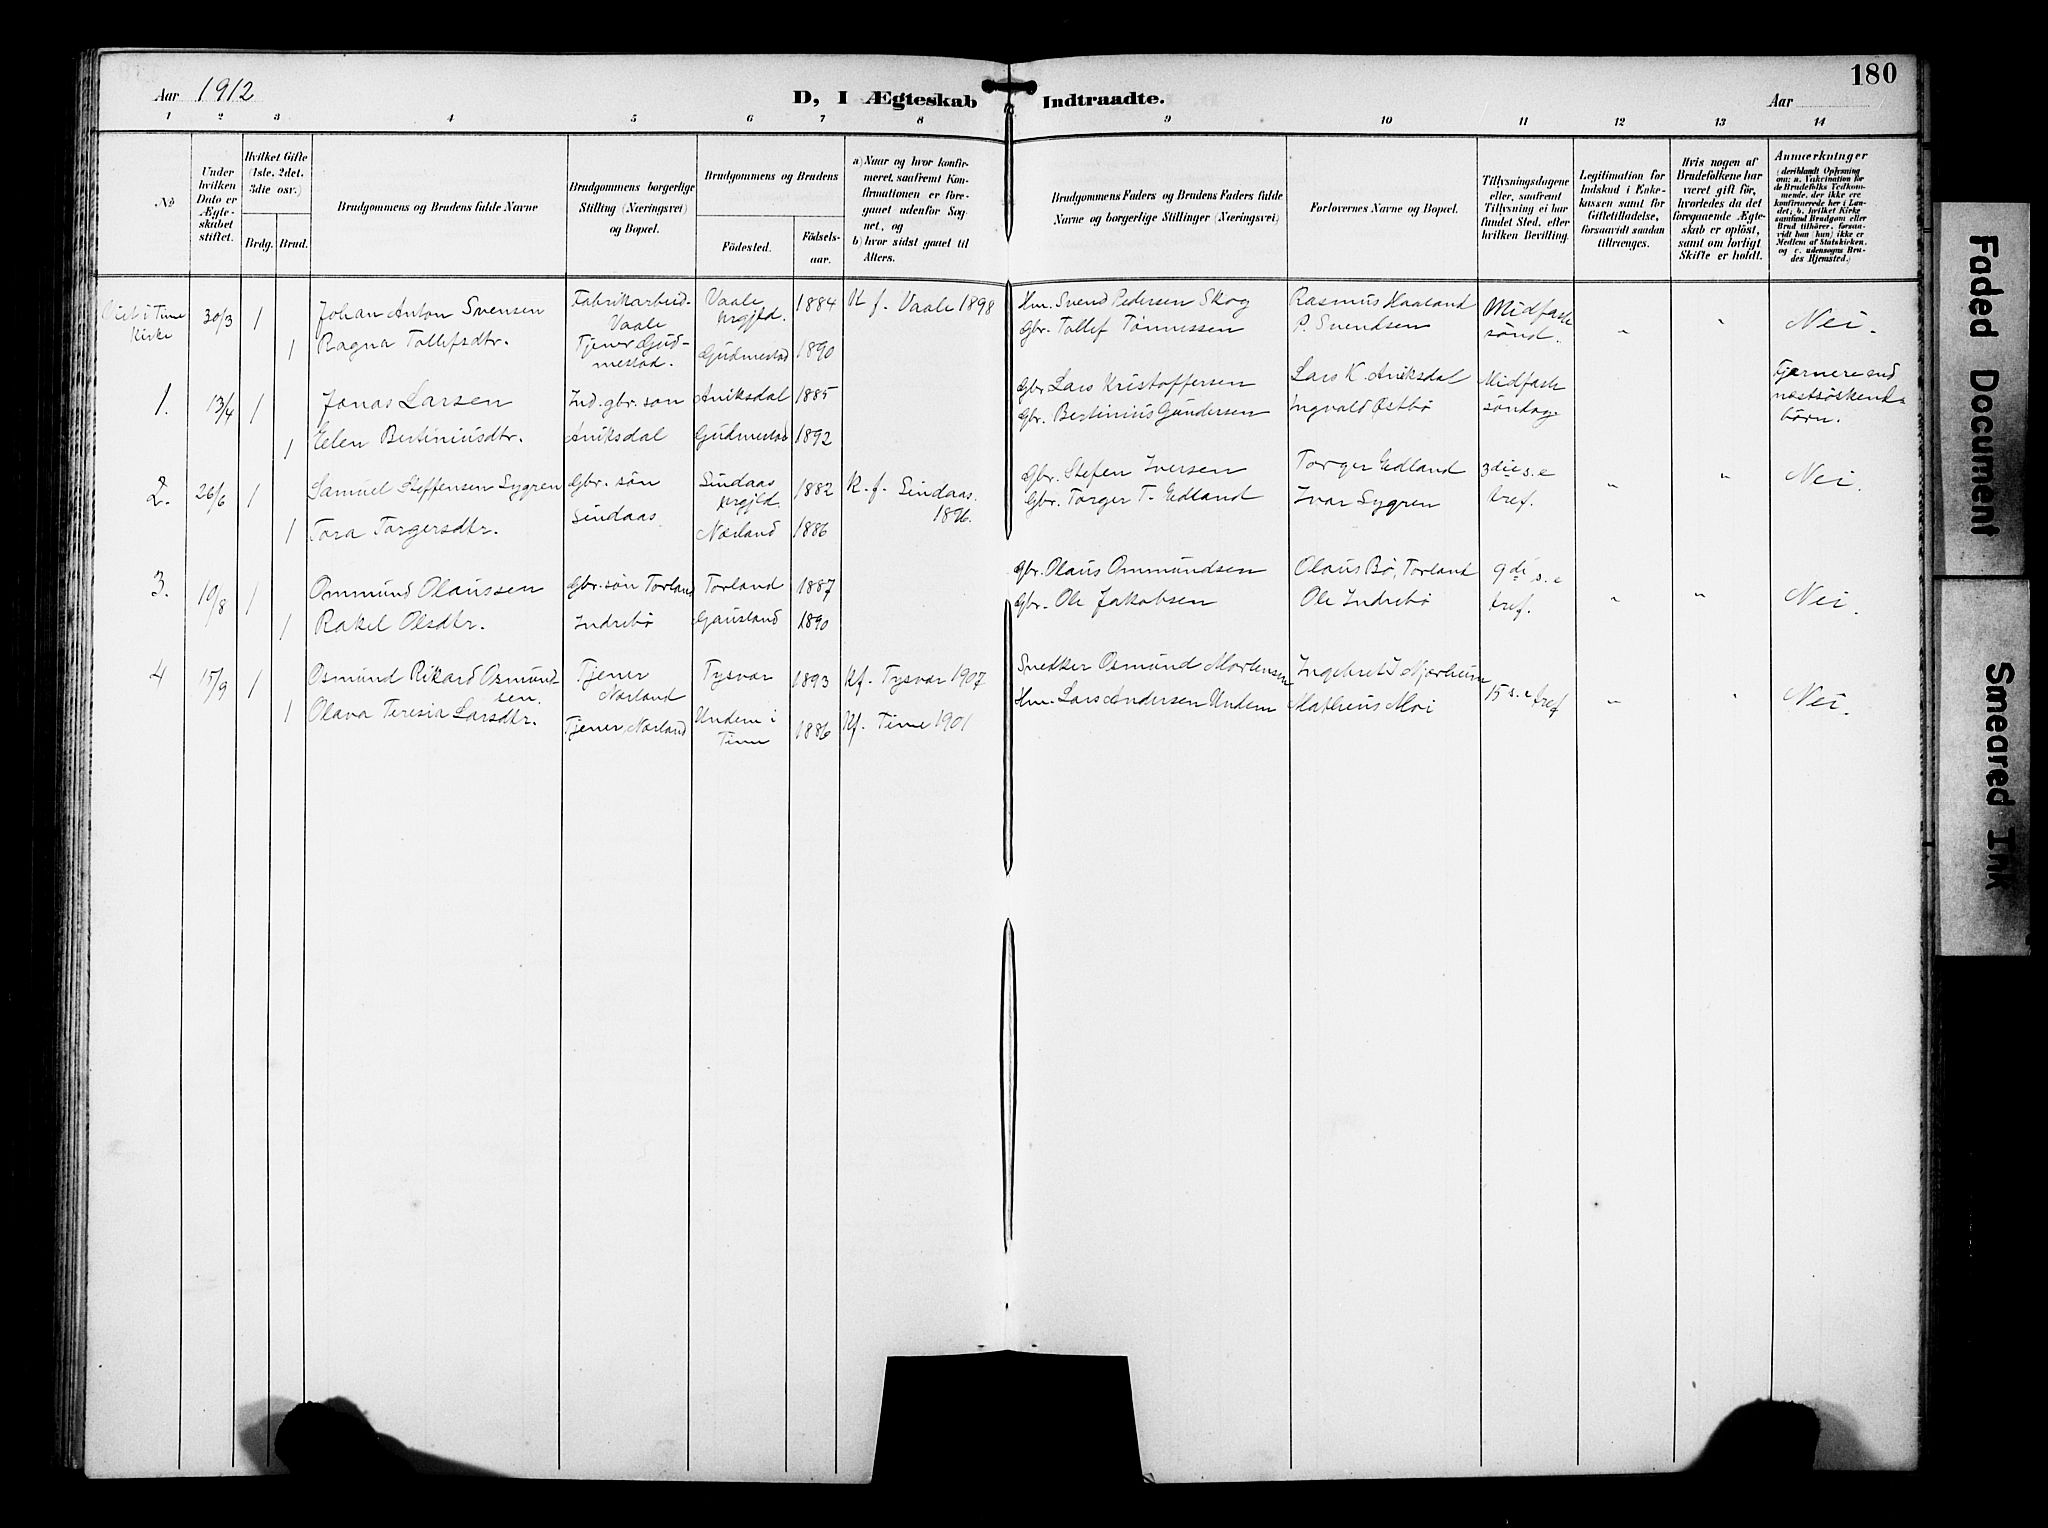 180
Aar 1912
D, I Ægteskab Indtraadte.
Aar
1 2 3 4 5 6 7 8 9 10 11 12 13 14
No
Under hvilken Dato er Ægteskabet stiftet.
Hvilket Gifte (1ste, 2det, 3die osv.)
Brdg. Brud.
Brudgommens og Brudens fulde Navne
Brudgommens borgerlige Stilling (Næringsvei) og Bopæl.
Brudgommens og Brudens
Födested.
Födsels-aar.
a) Naar og hvor konfirmeret, saafremt Konfirmationen er foregaaet udenfor Sognet, og
b) hvor sidst gaaet til Alters.
Brudgommens Faders og Brudens Faders fulde Navne og borgerlige Stillinger (Næringsvei)
Forlovernes Navne og Bopæl.
Tillysningsdagene eller, saafremt Tillysning ei har fundet Sted, efter hvilken Bevilling.
Legitimation for Indskud i Enkekassen samt for Giftetilladelse, forsaavidt saadan tiltrænges.
Hvis nogen af Brudefolkene har været gift för, hvorledes da det foregaaende Ægteskab er oplöst, samt om lovligt Skifte er holdt.
Anmærkninger
(deriblandt Oplysning om: a. Vakcination for de Brudefolks Vedkommende, der ikke ere konfirmerede her i Landet; b. hvilket Kirkesamfund Brudgom eller Brud tilhörer, forsaavidt han (hun) ikke er Medlem af Statskirken, og c. udensogns Brudes Hjemsted.)
Viet i Time Kirke
30/3 1
Johan Anton Svensen
Fabrikarbeid- Vaale
Vaale prgjld.
1884
K f. Vaale 1898
Hm. Svend Pedersen Skog
Rasmus Haaland
Midfaste sönd.
" "
Nei.
1
Ragna Tollefsdtr.
Tjener Gudmestad.
Gudmestad
1890
Gbr. Tollef Tönnessen
P. Svendsen
1. 13/4 1
Jonas Larsen
Ind. gbr. sön
Aniksdal
1885
Gbr. Lars Kristoffersen
Lars K. Aniksdal
Midfaste söndag
Fjernere end næstsöskendebörn.
1
Elen Bertiniusdtr.
Aniksdal
Gudmestad
1892
Gbr. Bertinius Gundersen
Ingvald Østbö
2. 26/6 1
Samuel Steffensen Sygren
Gbr. sön
Sindaas
Sindaas prgjld.
1882
K. f. Sindaas. 1896.
Gbr. Stefen Iversen
Torger Edland
3die s. e tref.
" "
Nei.
1
Tora Torgersdtr.
Nærland
1886
Gbr. Torger T. Edland
Ivar Sygren
3. 10/8 1
Ommund Olaussen
Gbr. sön Torland
Torland
1887
Gbr. Olaus Ommundsen
Olaus Bø, Torland
9di s. e tref.
" "
Nei.
1
Rakel Olsdtr.
Indrebö
Gausland
1890
Gbr. Ole Jakobsen
Ole Indrebö
4 15/9 1
Osmund Rikard Osmundsen.
Tjener Nærland
Tysvær
1893
Kf. Tysvær 1907
Snedker Osmund Mortensen
Ingebret J. Njærheim
15 s. e tref
" "
Nei.
1
Olava Teresia Larsdtr.
Tjener Nærland
Undem i Time
1886
Kf. Time 1901
Hm. Lars Andersen Undem
Matheus Moi
Faded Document
Smeared Ink